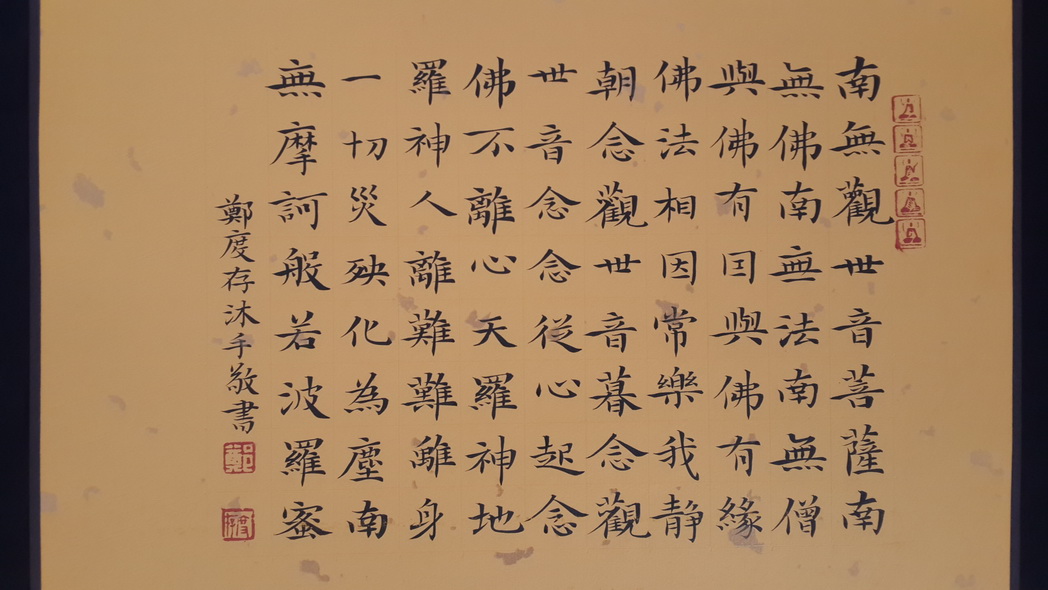 南無觀世音菩薩南
無佛南無法南無僧
與佛有囙與佛有緣
佛法相因常樂我静
朝念觀世音暮念觀
世音念念從心起念
佛不離心天羅神地
羅神人離難難離身
一切災殃化為塵南
無摩訶般若波羅蜜
鄭度存沐手敬書
鄭